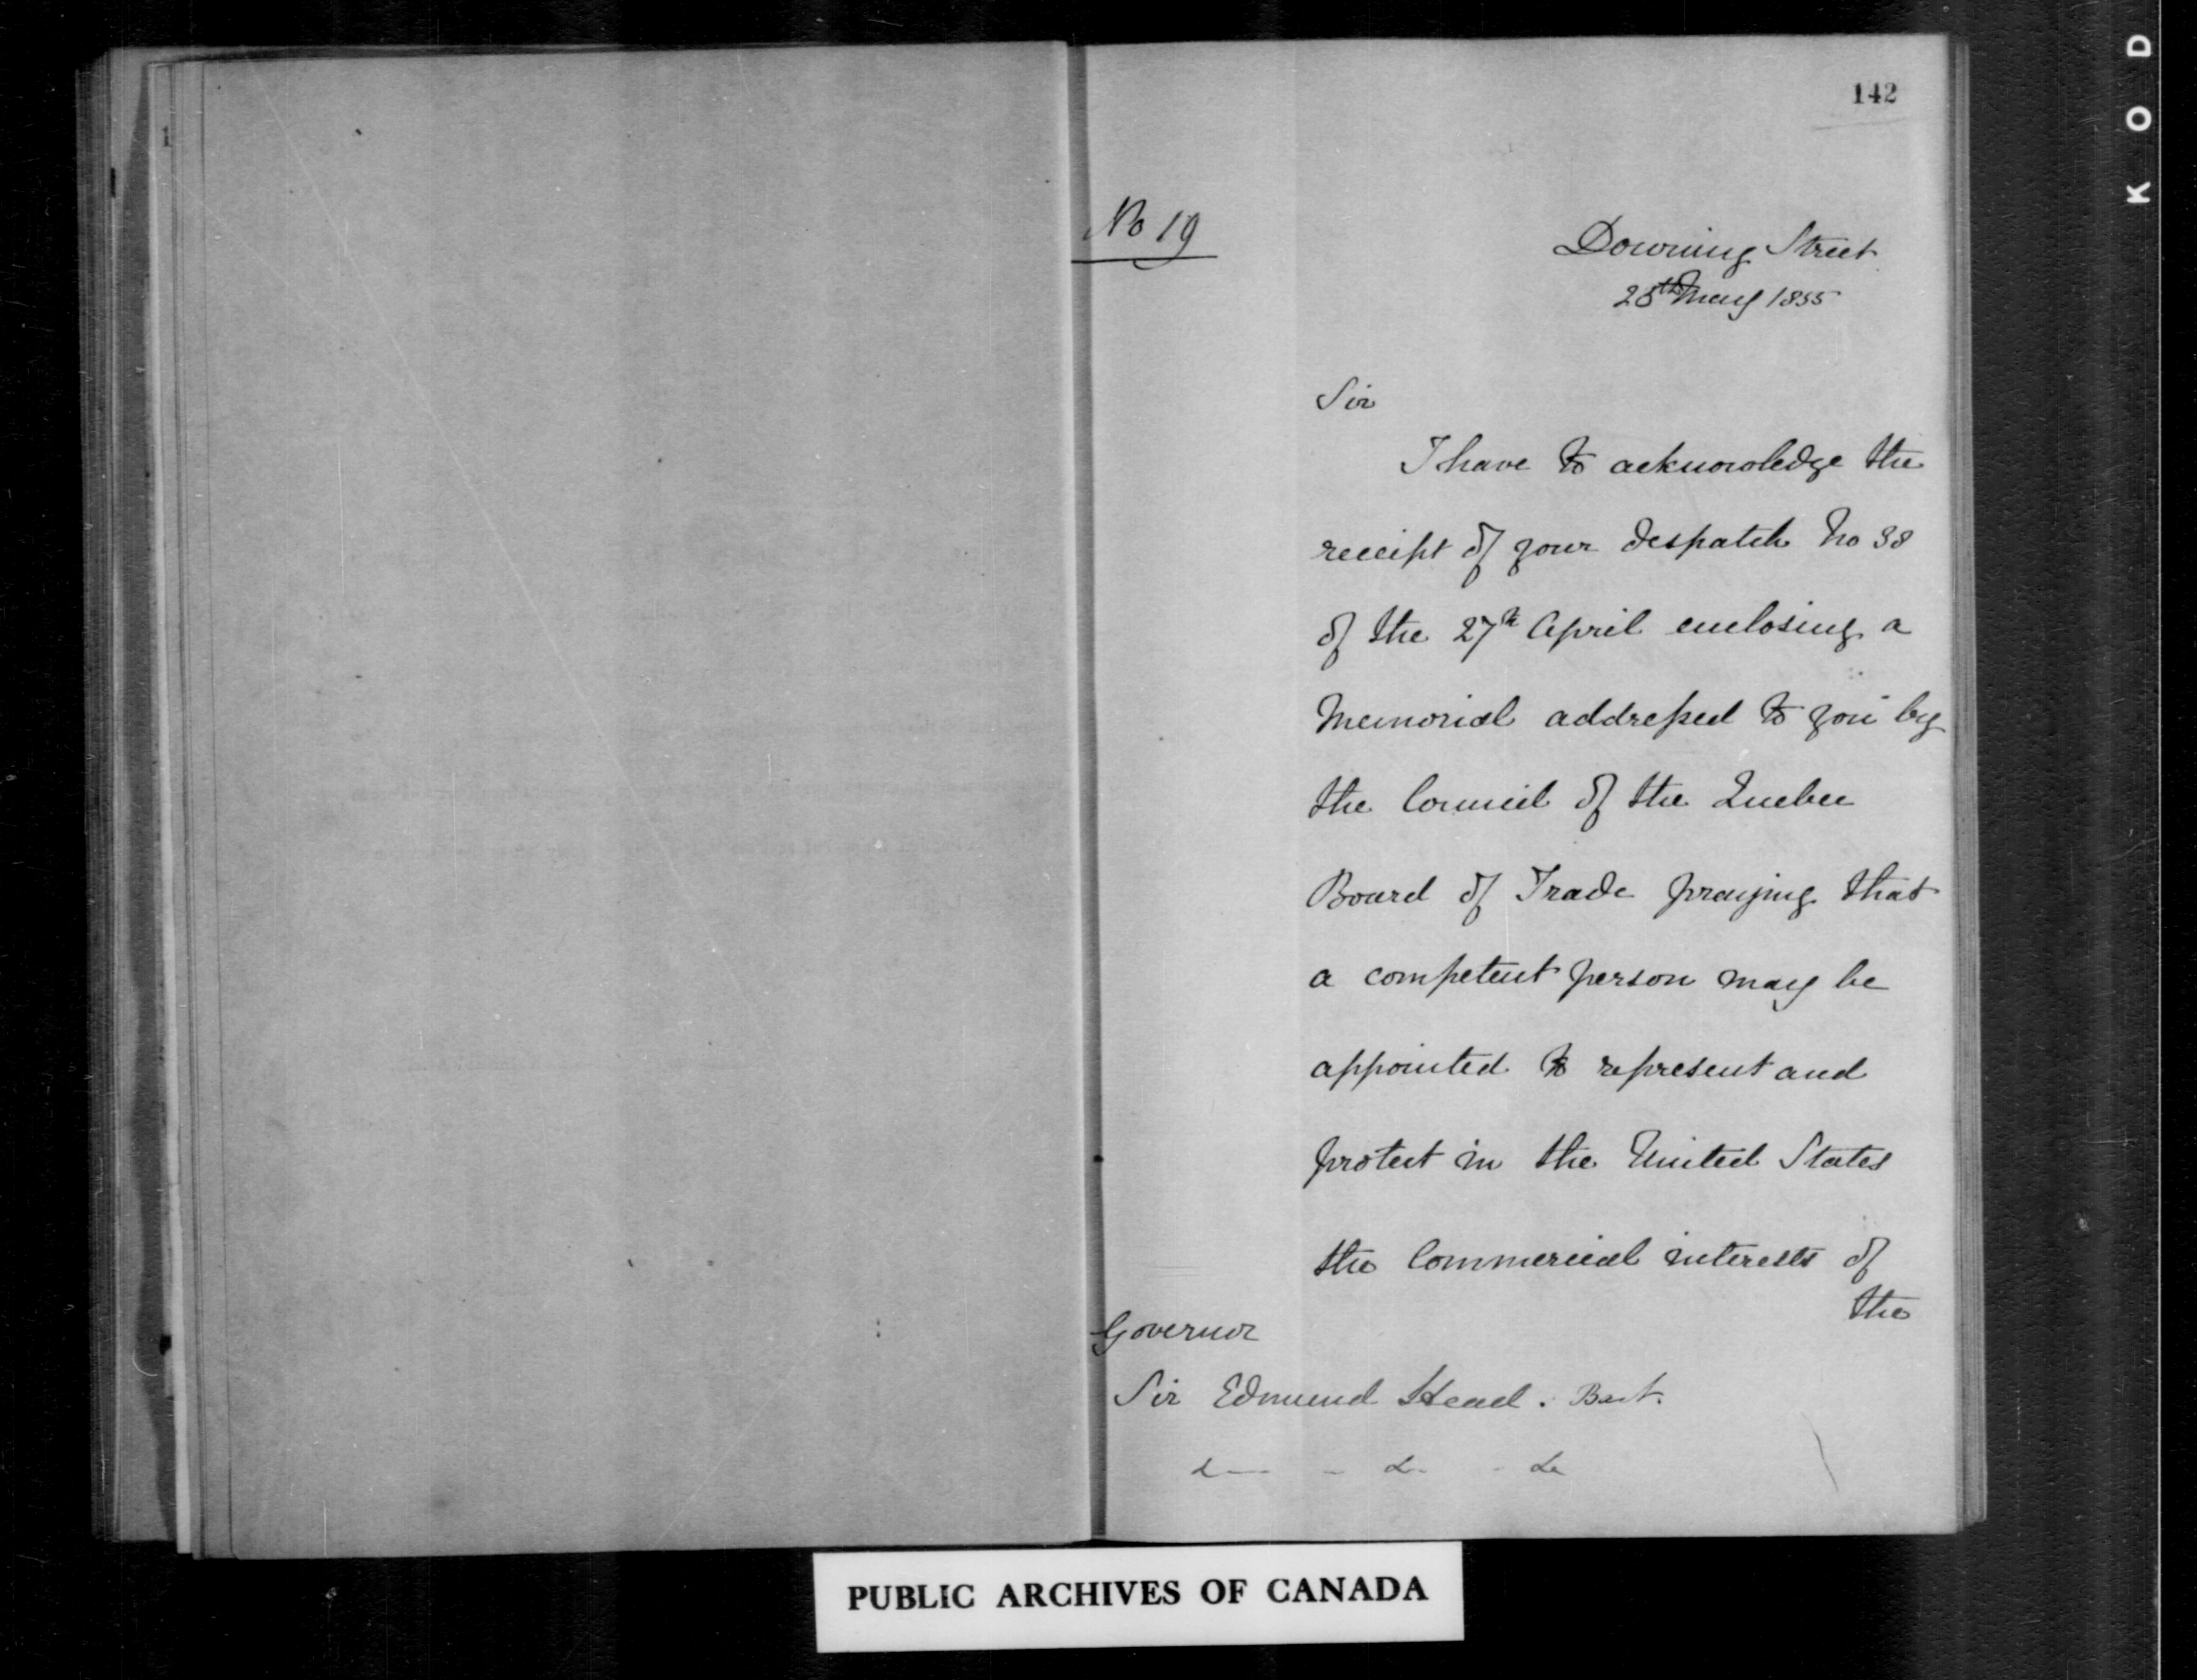 142
No 19
Downing Street
25th May 1855
Sir
I have to acknowledge the
receipt of your despatch No 38
of the 27th April enclosing a
Memorial addressed to you by
the Council of the Quebec
Board of Trade praying that
a competent person may be
appointed to represent and
protect in the United States
the Commercial interests of
the
Governor
Sir Edmund Head. Bart.
PUBLIC ARCHIVES OF CANADA
K O D